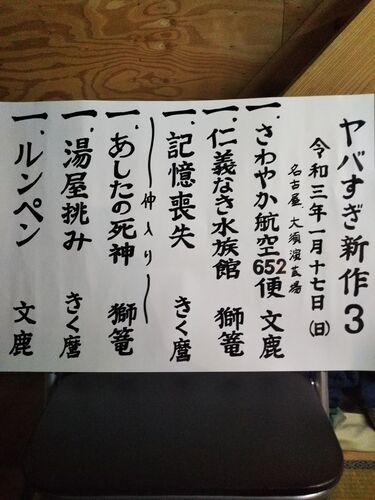 ヤバすぎ新作3
令和三年一月十七日(日)
名古屋 大須演芸場
一、さわやか航空652便 文鹿
一、仁義なき水族館 獅篭
一、記憶喪失 きく麿
仲入り
一、あしたの死神 獅篭
一、湯屋挑み きく麿
一、ルンペン 文鹿